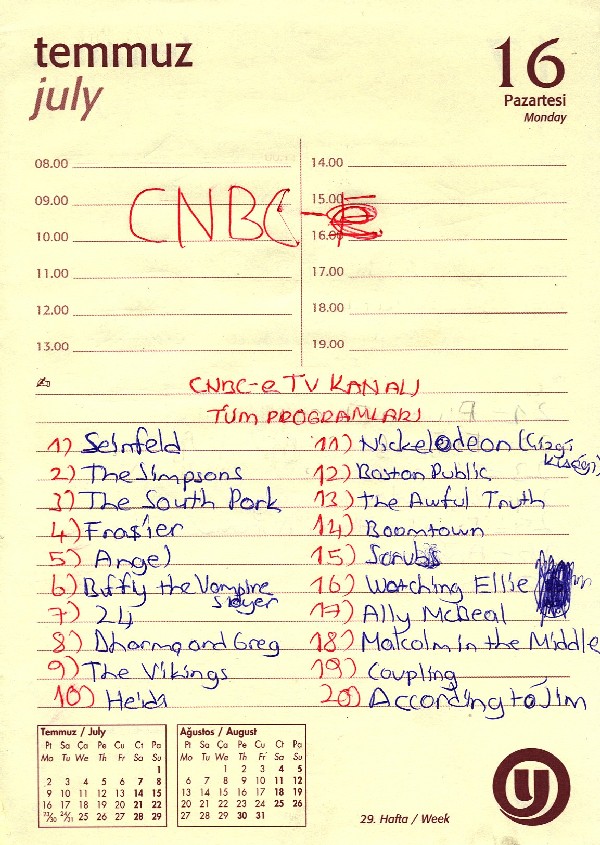 temmuz
july
16
Pazartesi
Monday
08.00
09.00
10.00
11.00
12.00
13.00
14.00
15.00
16.00
17.00
18.00
19.00
CNBC-E
CNBC-e TV KANALI
TÜM PROGRAMLARI
1) Seinfeld
2) The Simpsons
3) The South Park
4) Frasier
5) Angel
6) Buffy the Vampire
slayer
7) 24
8) Dharma and Greg
9) The Vikings
10) Heida
11) Nickelodeon (Çizgi
12) Boston Public
13) The Awful Truth
14) Boomtown
15) Scrubs
16) Watching Ellie
17) Ally McBeal
18) Malcolm in the Middle
19) Coupling
20) According to Jim
Temmuz / July
Pt Sa Ça Pe Cu Ct Pa
Mo Tu We Th Fr Sa Su
1
2 3 4 5 6 7 8
9 10 11 12 13 14 15
16 17 18 19 20 21 22
23/30 24/31 25 26 27 28 29
Ağustos / August
Pt Sa Ça Pe Cu Ct Pa
Mo Tu We Th Fr Sa Su
1 2 3 4 5
6 7 8 9 10 11 12
13 14 15 16 17 18 19
20 21 22 23 24 25 26
27 28 29 30 31
29. Hafta / Week
y